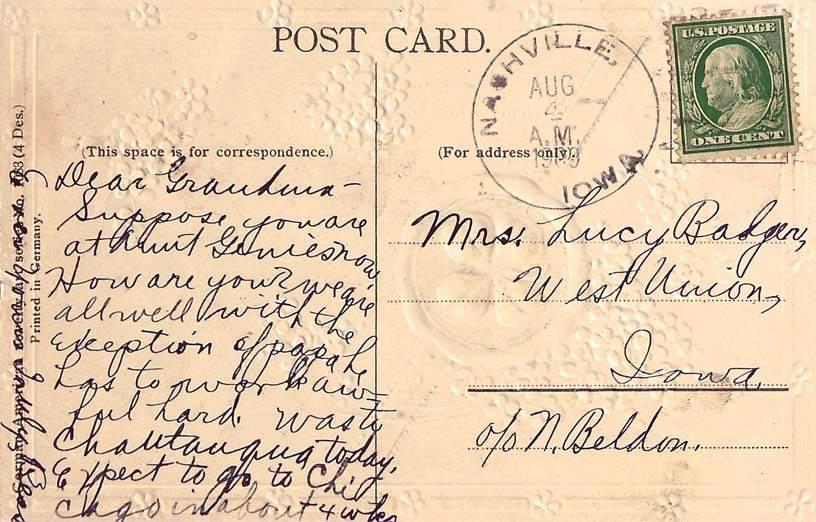 POST CARD.
NASHVILLE,
AUG
4
A.M.
1909
IOWA.
U.S. POSTAGE
ONE CENT
(This space is for correspondence.)
(For address only.)
Dear Grandma—
Suppose you are
at Aunt Genies now
How are you? we are
all well with the
exeption of papa he
has to work aw-
ful hard. Was to
Chautauqua today.
Expect to go to Chi
cago in about 4 wks
Mrs. Lucy Badger,
West Union,
Iowa.
c/o N. Beldon.
Printed in Germany.
(4 Des.)